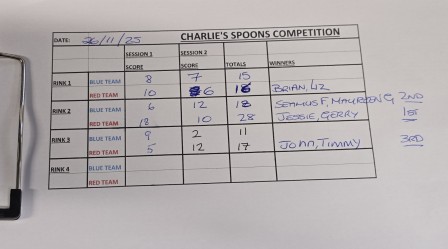 DATE: 26/11/25 CHARLIE'S SPOONS COMPETITION
SESSION 1 SESSION 2
SCORE SCORE TOTALS WINNERS
RINK 1 BLUE TEAM 8 7 15
RED TEAM 10 6 16 BRIAN, LIZ
RINK 2 BLUE TEAM 6 12 18 SEAMUS F, MAUREEN G 2ND
RED TEAM 18 10 28 JESSIE, GERRY 1ST
RINK 3 BLUE TEAM 9 2 11
RED TEAM 5 12 17 JOHN, TIMMY 3RD
RINK 4 BLUE TEAM
RED TEAM